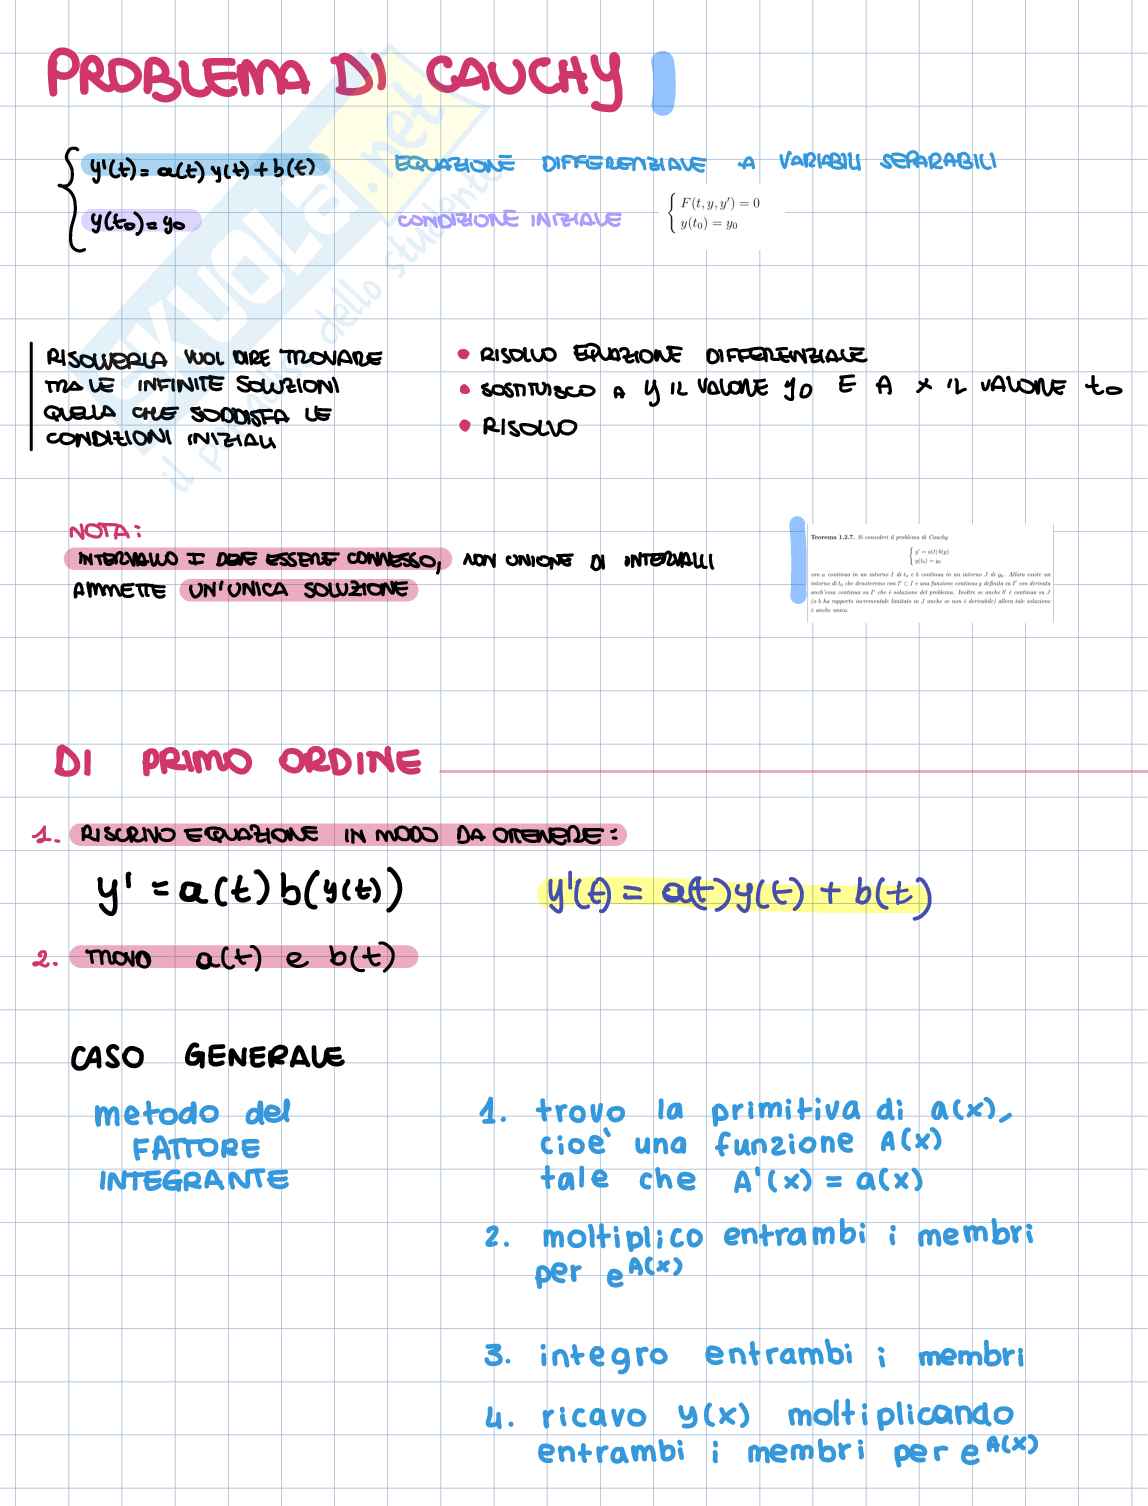 PROBLEMA DI CAUCHY
y'(t) = a(t) y(t) + b(t)
EQUAZIONE DIFFERENZIALE A VARIABILI SEPARABILI
y(t₀) = y₀
CONDIZIONE INIZIALE
F(t, y, y') = 0
y(t₀) = y₀
SKUOLA.net
il portale dello studente
RISOLVERLA VUOL DIRE TROVARE
TRA LE INFINITE SOLUZIONI
QUELLA CHE SODDISFA LE
CONDIZIONI INIZIALI
• RISOLVO EQUAZIONE DIFFERENZIALE
• SOSTITUISCO A y IL VALORE y₀ E A x IL VALORE t₀
• RISOLVO
NOTA:
INTERVALLO I DEVE ESSERE CONNESSO, NON UNIONE DI INTERVALLI
AMMETTE UN'UNICA SOLUZIONE
Teorema 1.2.7. Si consideri il problema di Cauchy
y' = a(t) b(y)
y(t₀) = y₀
con a continua in un intorno I di t₀ e b continua in un intorno J di y₀. Allora esiste un
intorno di t₀ che denoteremo con I' ⊂ I e una funzione continua y definita su I' con derivata
anch'essa continua su I' che è soluzione del problema. Inoltre se anche b' è continua su J
(o b ha rapporto incrementale limitato in J anche se non è derivabile) allora tale soluzione
è anche unica.
DI PRIMO ORDINE
1. RISCRIVO EQUAZIONE IN MODO DA OTENERE:
y' = a(t) b(y(t))
y'(t) = a(t) y(t) + b(t)
2. TROVO a(t) e b(t)
CASO GENERALE
metodo del
FATTORE
INTEGRANTE
1. trovo la primitiva di a(x),
cioe' una funzione A(x)
tale che A'(x) = a(x)
2. moltiplico entrambi i membri
per e^A(x)
3. integro entrambi i membri
4. ricavo y(x) moltiplicando
entrambi i membri per e^A(x)